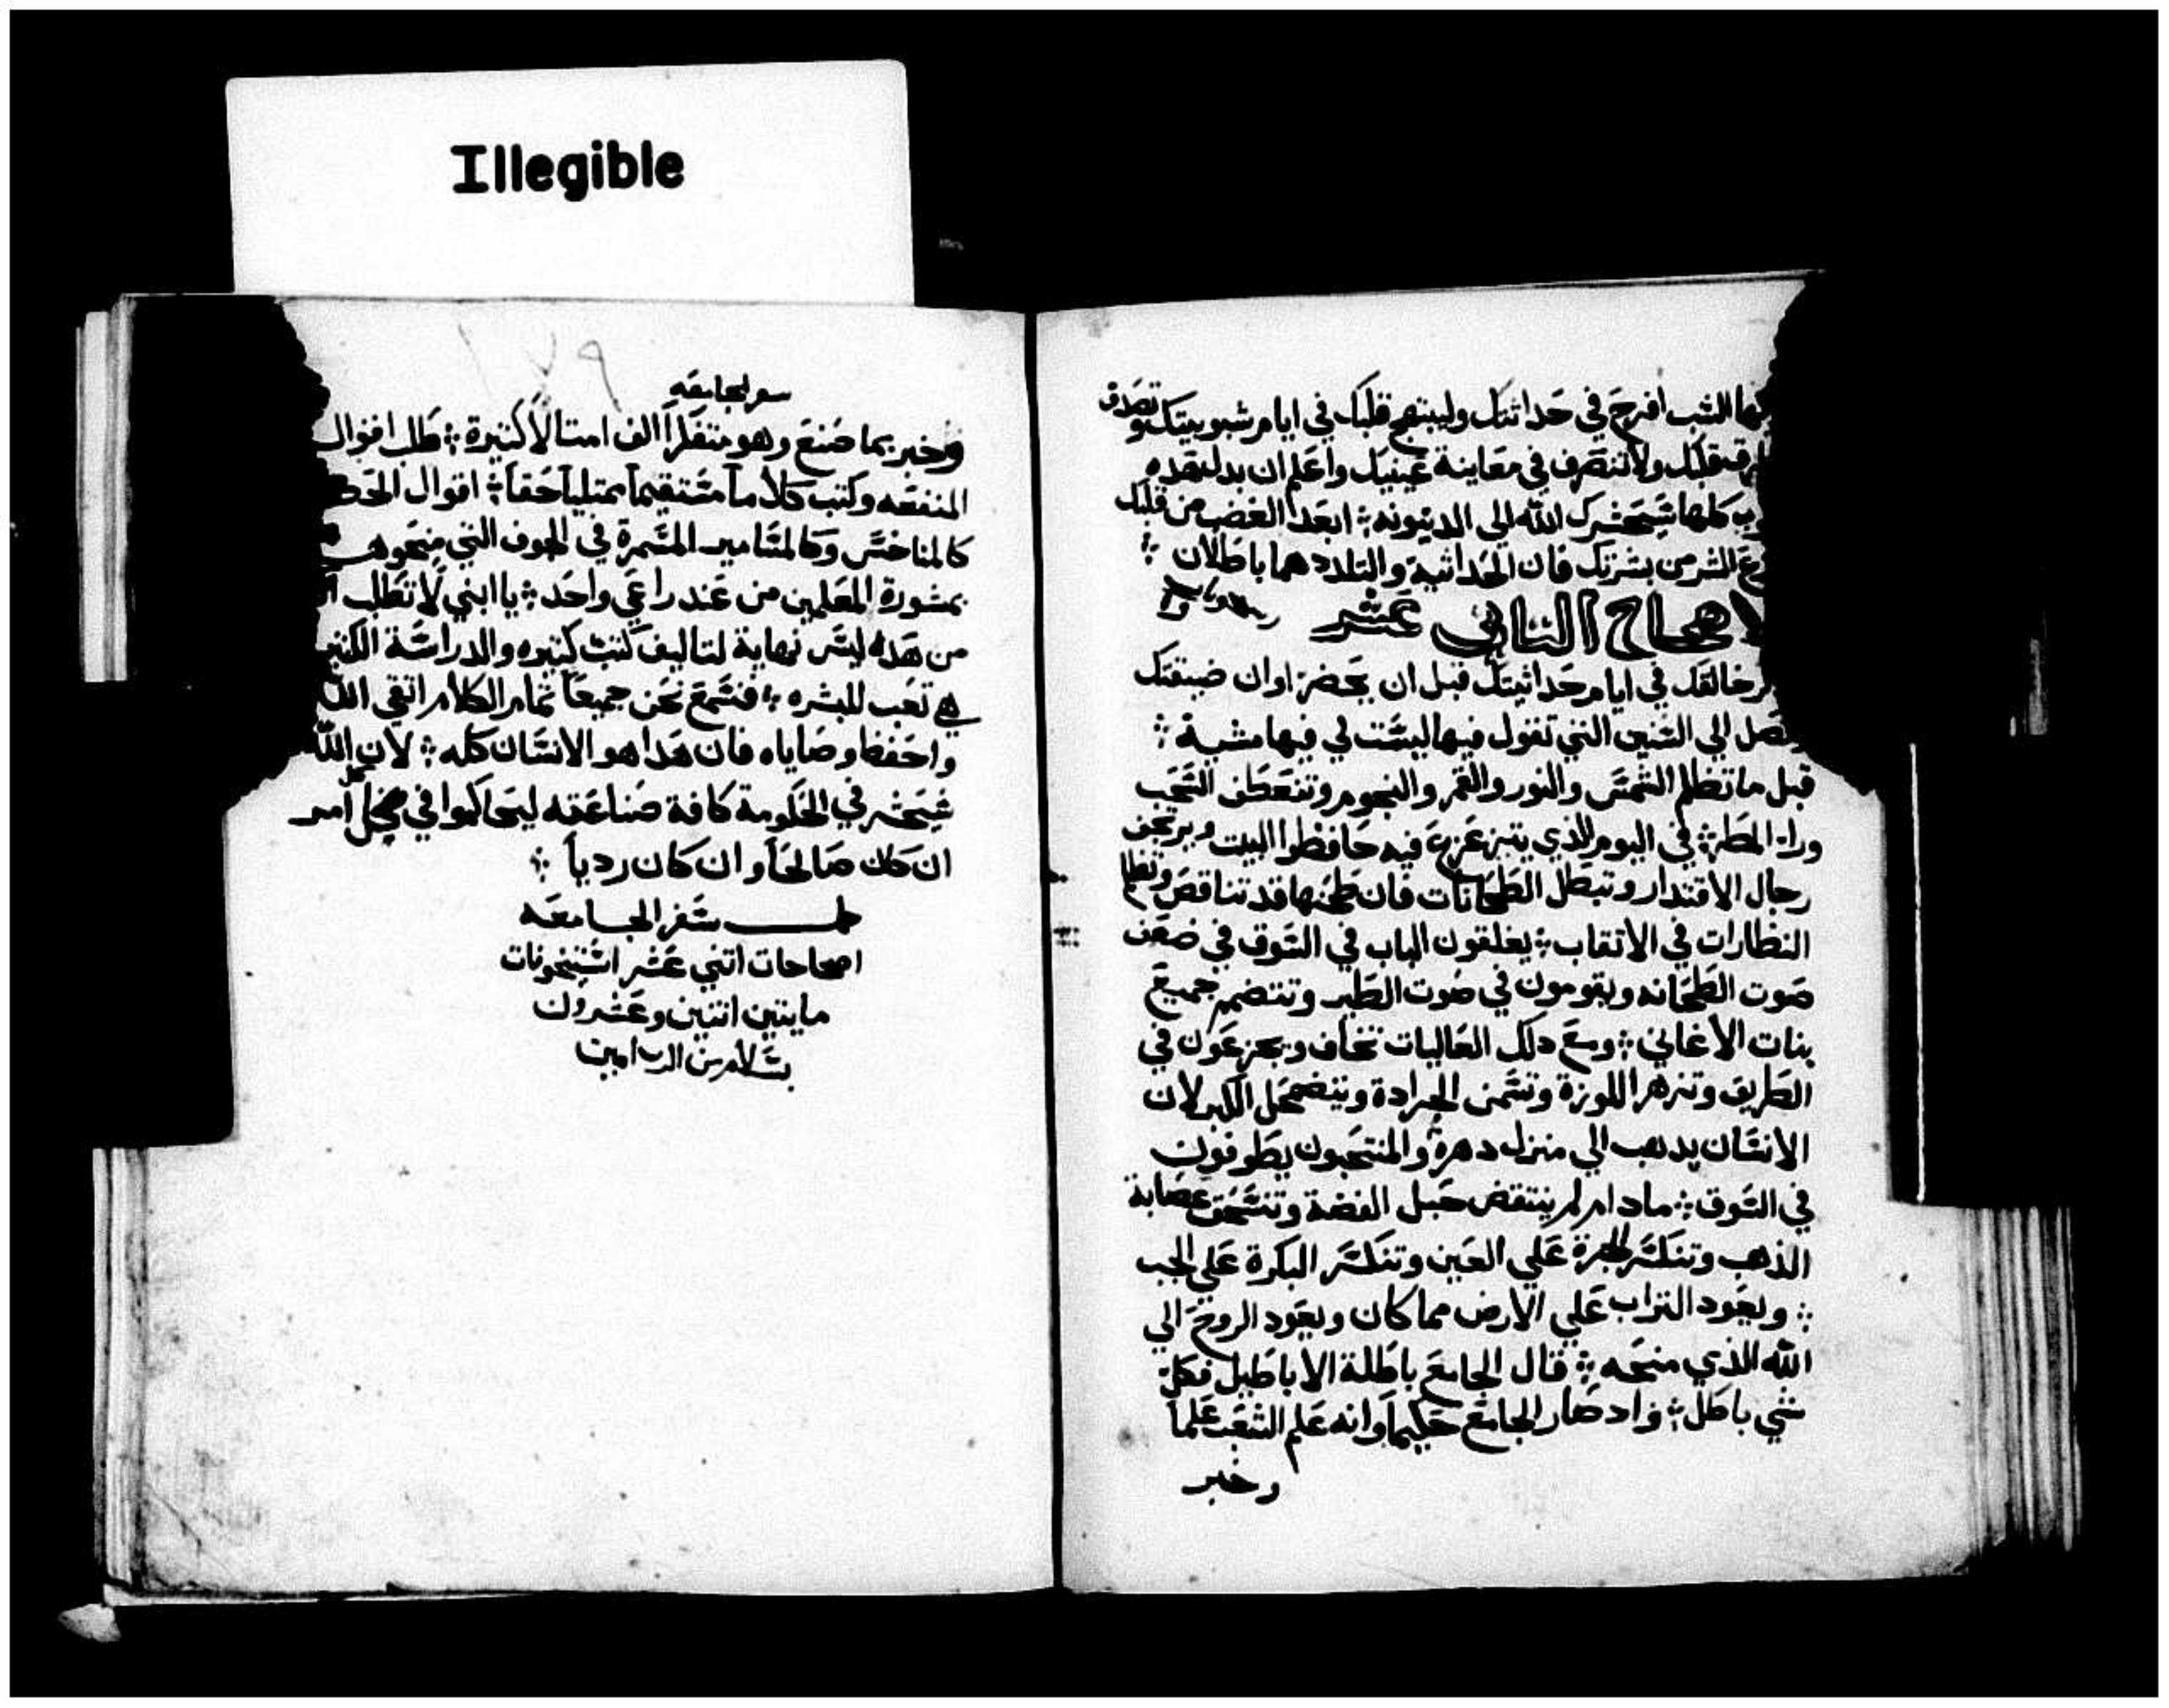 Illegible
الشب افرح في حداثتك وليبتهج قلبك في ايام شبوبيتك
قلبك ولا تنصرف في معاينة عينيك واعلم ان بدل هذه
كلها سيحشرك الله الى الدينونه ؛ ابعد الغضب من قلبك
الشر من بشرتك فان الحداثية والتلادد هما باطلان ؛
الاصحاح الثاني عشر
خالقك في ايام حداثيتك قبل ان يحضر اوان ضيقتك
الي السنين التي تقول فيها ليست لي فيها مشية ؛
قبل ما تظلم الشمس والنور والقمر والنجوم وتنعطف السحب
وراء المطر ؛ في اليوم الذي يتزعزع فيه حافظوا البيت ويرتجف
رجال الاقتدار وتبطل الطحانات فان طحنها قد تناقص وتظلم
النظارات في الاتقاب ؛ يغلقون الباب في السوق في ضعف
صوت الطحانه ويقومون في صوت الطير وتتضمم جميع
بنات الاغاني ؛ ومع دلك العاليات تخاف ويجزعون في
الطريق وتزهر اللوزة وتسمن الجرادة ويتضمحل الكبر لان
الانسان يدهب الي منزل دهرة والمنتحبون يطوفون
في السوق ؛ ما دام لم ينتقض حبل الفضة وتنسحق عصابة
الذهب وتنكسر الجرة علي العين وتنكسر البكرة علي الجب
؛ ويعود التراب علي الارض مما كان ويعود الروح الي
الله الذي منحه ؛ قال الجامع باطلة الاباطيل فكل
شي باطل ؛ واد صار الجامع حكيماً وانه علم الشعب علما
وخبر
١٧٩
سفر الجامعه
وخبر بما صنع وهو متفلراً الف امتالاً كتيرة ؛ طلب اقوال
المنفعه وكتب كلاماً مستقيماً ممتلياً حقاً ؛ اقوال
كالمناخس وكالمسامير المسمرة في الجوف التي منحوها
بمشورة المعلمين من عند راعي واحد ؛ يا ابني لا تطلب
من هده ليس نهاية لتاليف كتب كتيره والدراسة الكتير
هي تعب للبشره ؛ فنسمع نحن جميعاً تمام الكلام اتقي الله
واحفظ وصاياه فان هدا هو الانسان كله ؛ لان الله
سيحشر في الحكومة كافة صناعته ليحاكموا في كل امر
ان كان صالحاً وان كان ردياً ؛
كمل سفر الجامعه
اصحاحات اتني عشر استيخونات
مايتين اتنين وعشرون
بسلام من الرب امين